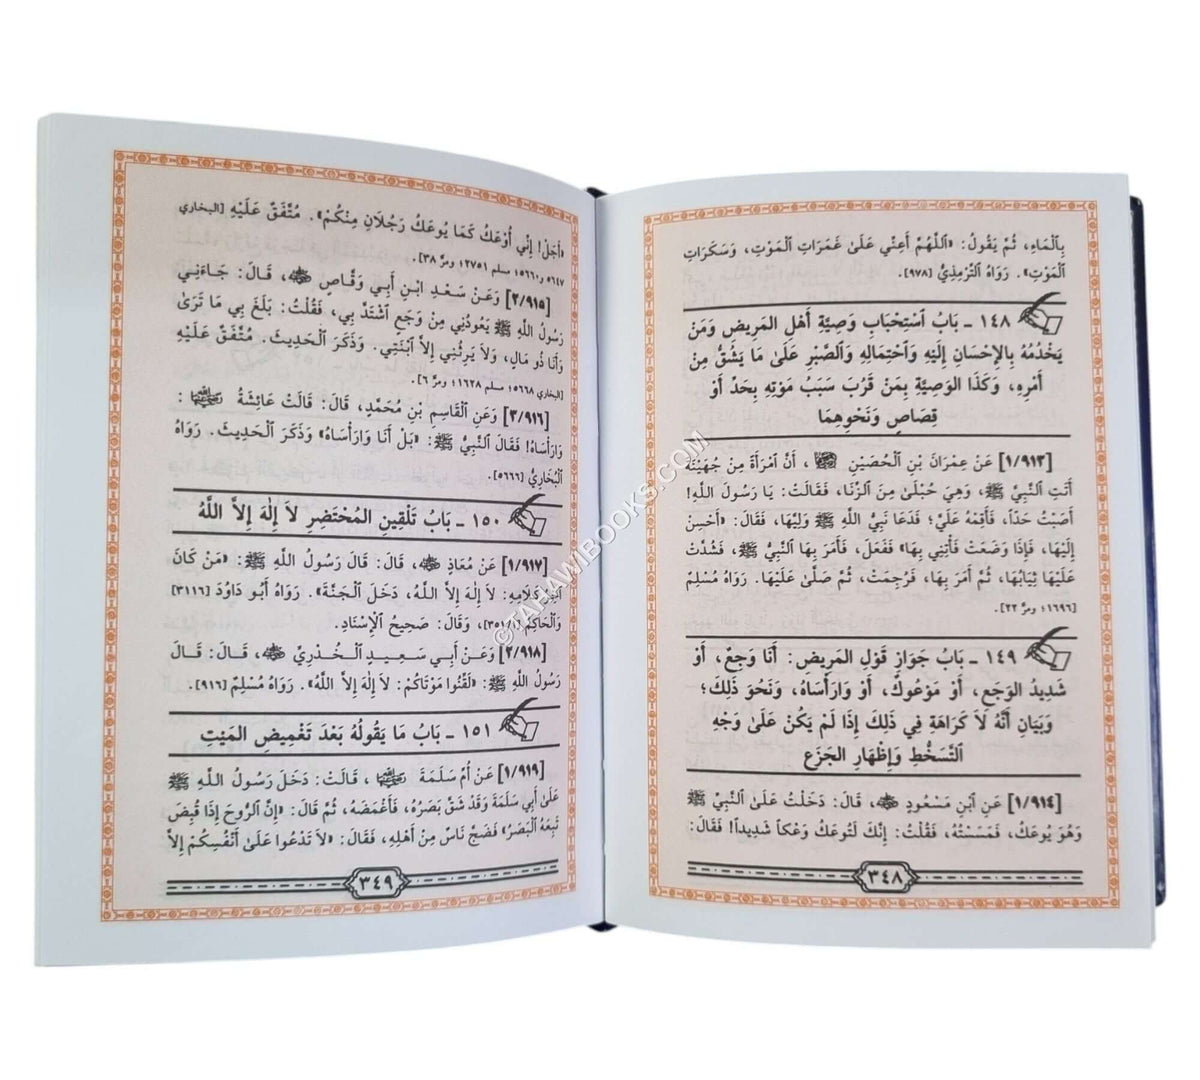 بِالْمَاءِ، ثُمَّ يَقُولُ: «اللَّهُمَّ أَعِنِّي عَلَىٰ غَمَرَاتِ الْمَوْتِ، وَسَكَرَاتِ
الْمَوْتِ». رَوَاهُ التِّرْمِذِيُّ [٩٧٨].
١٤٨ ـ بَابُ اسْتِحْبَابِ وَصِيَّةِ أَهْلِ المَرِيضِ وَمَنْ
يَخْدُمُهُ بِالإِحْسَانِ إِلَيْهِ وَاحْتِمَالِهِ وَالصَّبْرِ عَلَىٰ مَا يَشُقُّ مِنْ
أَمْرِهِ، وَكَذَا الوَصِيَّةِ بِمَنْ قَرُبَ سَبَبُ مَوْتِهِ بِحَدٍّ أَوْ
قِصَاصٍ وَنَحْوِهِمَا
[١/٩١٣] عَنْ عِمْرَانَ بْنِ الْحُصَيْنِ ، أَنَّ امْرَأَةً مِنْ جُهَيْنَةَ
أَتَتِ النَّبِيَّ ﷺ، وَهِيَ حُبْلَىٰ مِنَ الزِّنَا، فَقَالَتْ: يَا رَسُولَ اللَّهِ!
أَصَبْتُ حَدّاً، فَأَقِمْهُ عَلَيَّ؛ فَدَعَا نَبِيُّ اللَّهِ ﷺ وَلِيَّهَا، فَقَالَ: «أَحْسِنْ
إِلَيْهَا، فَإِذَا وَضَعَتْ فَأْتِنِي بِهَا» فَفَعَلَ، فَأَمَرَ بِهَا النَّبِيُّ ﷺ، فَشُدَّتْ
عَلَيْهَا ثِيَابُهَا، ثُمَّ أَمَرَ بِهَا، فَرُجِمَتْ، ثُمَّ صَلَّىٰ عَلَيْهَا. رَوَاهُ مُسْلِمٌ
[١٦٩٦؛ ومرَّ ٢٢].
١٤٩ ـ بَابُ جَوَازِ قَوْلِ المَرِيضِ: أَنَا وَجِعٌ، أَوْ
شَدِيدُ الوَجَعِ، أَوْ مَوْعُوكٌ، أَوْ وَارَأْسَاهُ، وَنَحْوَ ذٰلِكَ؛
وَبَيَانِ أَنَّهُ لاَ كَرَاهَةَ فِي ذٰلِكَ إِذَا لَمْ يَكُنْ عَلَىٰ وَجْهِ
التَّسَخُّطِ وَإِظْهَارِ الجَزَعِ
[١/٩١٤] عَنِ ابْنِ مَسْعُودٍ ، قَالَ: دَخَلْتُ عَلَىٰ النَّبِيِّ ﷺ
وَهُوَ يُوعَكُ، فَمَسَسْتُهُ، فَقُلْتُ: إِنَّكَ لَتُوعَكُ وَعْكاً شَدِيداً! فَقَالَ:
٣٤٨
«أَجَلْ! إِنِّي أُوْعَكُ كَمَا يُوعَكُ رَجُلاَنِ مِنْكُمْ». مُتَّفَقٌ عَلَيْهِ [البخاري
٥٦٤٧ و٥٦٦٠؛ مسلم ٢٧٥١؛ ومرَّ ٣٨].
[٢/٩١٥] وَعَنْ سَعْدِ ابْنِ أَبِي وَقَّاصٍ ، قَالَ: جَاءَنِي
رَسُولُ اللَّهِ ﷺ يَعُودُنِي مِنْ وَجَعٍ اشْتَدَّ بِي، فَقُلْتُ: بَلَغَ بِي مَا تَرَىٰ
وَأَنَا ذُو مَالٍ، وَلاَ يَرِثُنِي إِلاَّ ابْنَتِي. وَذَكَرَ الْحَدِيثَ. مُتَّفَقٌ عَلَيْهِ
[البخاري ٥٦٦٨؛ مسلم ١٦٢٨؛ ومرَّ ٦].
[٣/٩١٦] وَعَنِ الْقَاسِمِ بْنِ مُحَمَّدٍ، قَالَ: قَالَتْ عَائِشَةُ :
وَارَأْسَاهُ! فَقَالَ النَّبِيُّ ﷺ: «بَلْ أَنَا وَارَأْسَاهُ» وَذَكَرَ الْحَدِيثَ. رَوَاهُ
الْبُخَارِيُّ [٥٦٦٦].
١٥٠ ـ بَابُ تَلْقِينِ المُحْتَضِرِ لاَ إِلٰهَ إِلاَّ اللَّهُ
[١/٩١٧] عَنْ مُعَاذٍ ، قَالَ: قَالَ رَسُولُ اللَّهِ ﷺ: «مَنْ كَانَ
آخِرُ كَلاَمِهِ: لاَ إِلٰهَ إِلاَّ اللَّهُ، دَخَلَ الْجَنَّةَ». رَوَاهُ أَبُو دَاوُدَ [٣١١٦]
وَالْحَاكِمُ [٣٥١/١]، وَقَالَ: صَحِيحُ الإِسْنَادِ.
[٢/٩١٨] وَعَنْ أَبِي سَعِيدٍ الْخُدْرِيِّ ، قَالَ: قَالَ
رَسُولُ اللَّهِ ﷺ: «لَقِّنُوا مَوْتَاكُمْ: لاَ إِلٰهَ إِلاَّ اللَّهُ». رَوَاهُ مُسْلِمٌ [٩١٦].
١٥١ ـ بَابُ مَا يَقُولُهُ بَعْدَ تَغْمِيضِ المَيْتِ
[١/٩١٩] عَنْ أُمِّ سَلَمَةَ ، قَالَتْ: دَخَلَ رَسُولُ اللَّهِ ﷺ
عَلَىٰ أَبِي سَلَمَةَ وَقَدْ شَقَّ بَصَرُهُ، فَأَغْمَضَهُ، ثُمَّ قَالَ: «إِنَّ الرُّوحَ إِذَا قُبِضَ
تَبِعَهُ الْبَصَرُ» فَضَجَّ نَاسٌ مِنْ أَهْلِهِ، فَقَالَ: «لاَ تَدْعُوا عَلَىٰ أَنْفُسِكُمْ إِلاَّ
٣٤٩
©TAHAWIBOOKS.COM